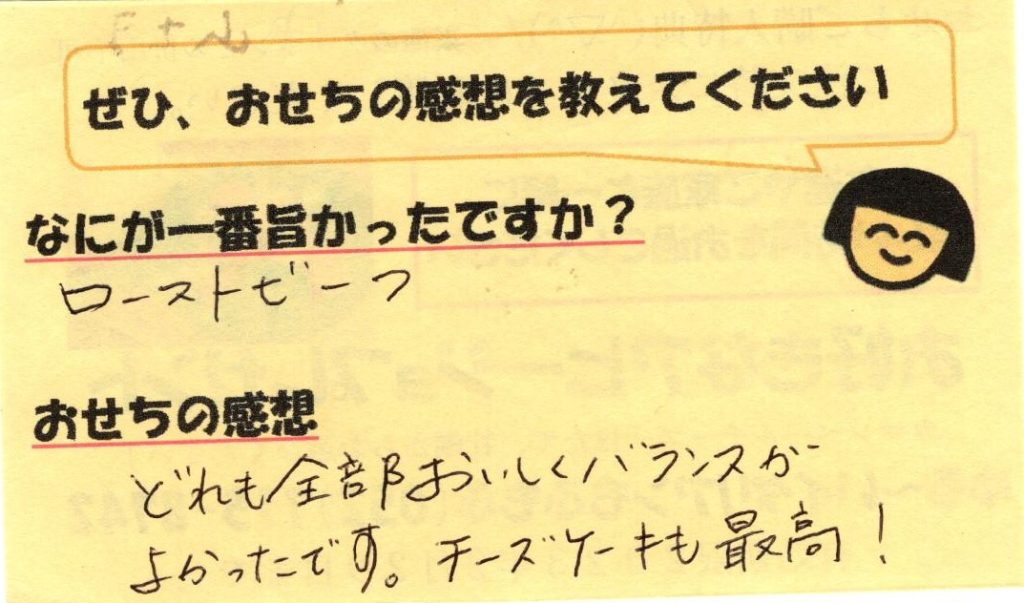 ぜひ、おせちの感想を教えてください
なにが一番旨かったですか？
ローストビーフ
おせちの感想
どれも全部おいしくバランスが
よかったです。チーズケーキも最高！